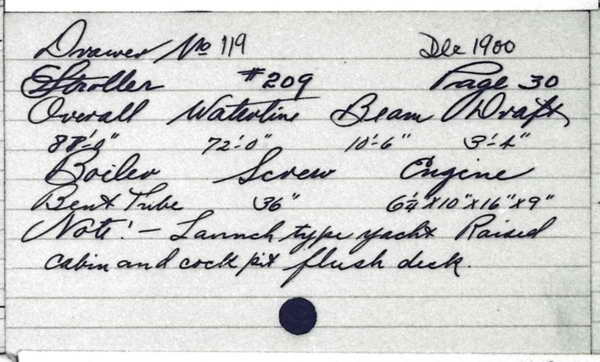 Drawer No 119 Dec 1900
Stroller #209 Page 30
Overall Waterline Beam Draft
88'-0" 72'-0" 10'-6" 3'-4"
Boiler Screw Engine
Bent Tube 36" 6¼"x10"x16"x9"
Note! - Launch type yacht Raised
cabin and cock pit flush deck.